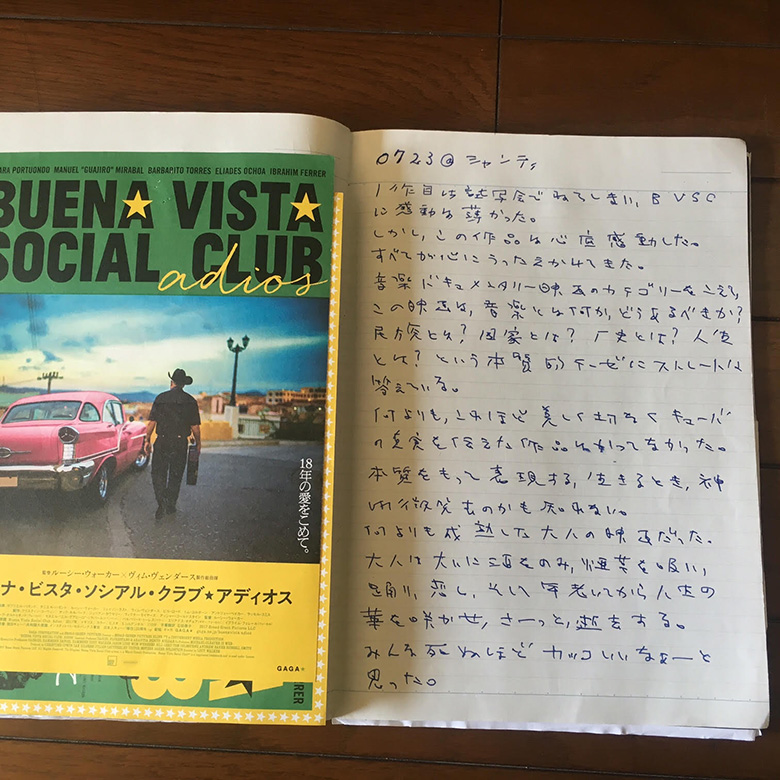 ARA PORTUONDO MANUEL "GUAJIRO" MIRABAL BARBARITO TORRES ELIADES OCHOA IBRAHIM FERRER
BUENA VISTA
SOCIAL CLUB
adios
18年の愛をこめて。
監督 ルーシー・ウォーカー × ヴィム・ヴェンダース 製作総指揮
ナ・ビスタ・ソシアル・クラブ★アディオス
GAGA
0723@シャンティ
1作目は試写会でねてしまい、BVSC
に感動は薄かった。
しかし、この作品は心底感動した。
すべてが心にうったえかけてきた。
音楽ドキュメンタリー映画のカテゴリーをこえて、
この映画は、音楽とは何か、どうあるべきか?
民族とは? 国家とは? 歴史とは? 人生
とは? という本質的テーゼにストレートに
答えている。
何よりも、これほど美しく切なくキューバ
の真実を伝えた作品はかつてなかった。
本質をもって表現する、生きるとき、神
は微笑むのかも知れない。
何よりも成熟した大人の映画だった。
大人は大いに酒をのみ、煙草を吸い、
踊り、恋し、そして年老いてから人生の
華を咲かせ、さーっと、逝去する。
みんな死ぬほどカッコいいなぁーと
思った。